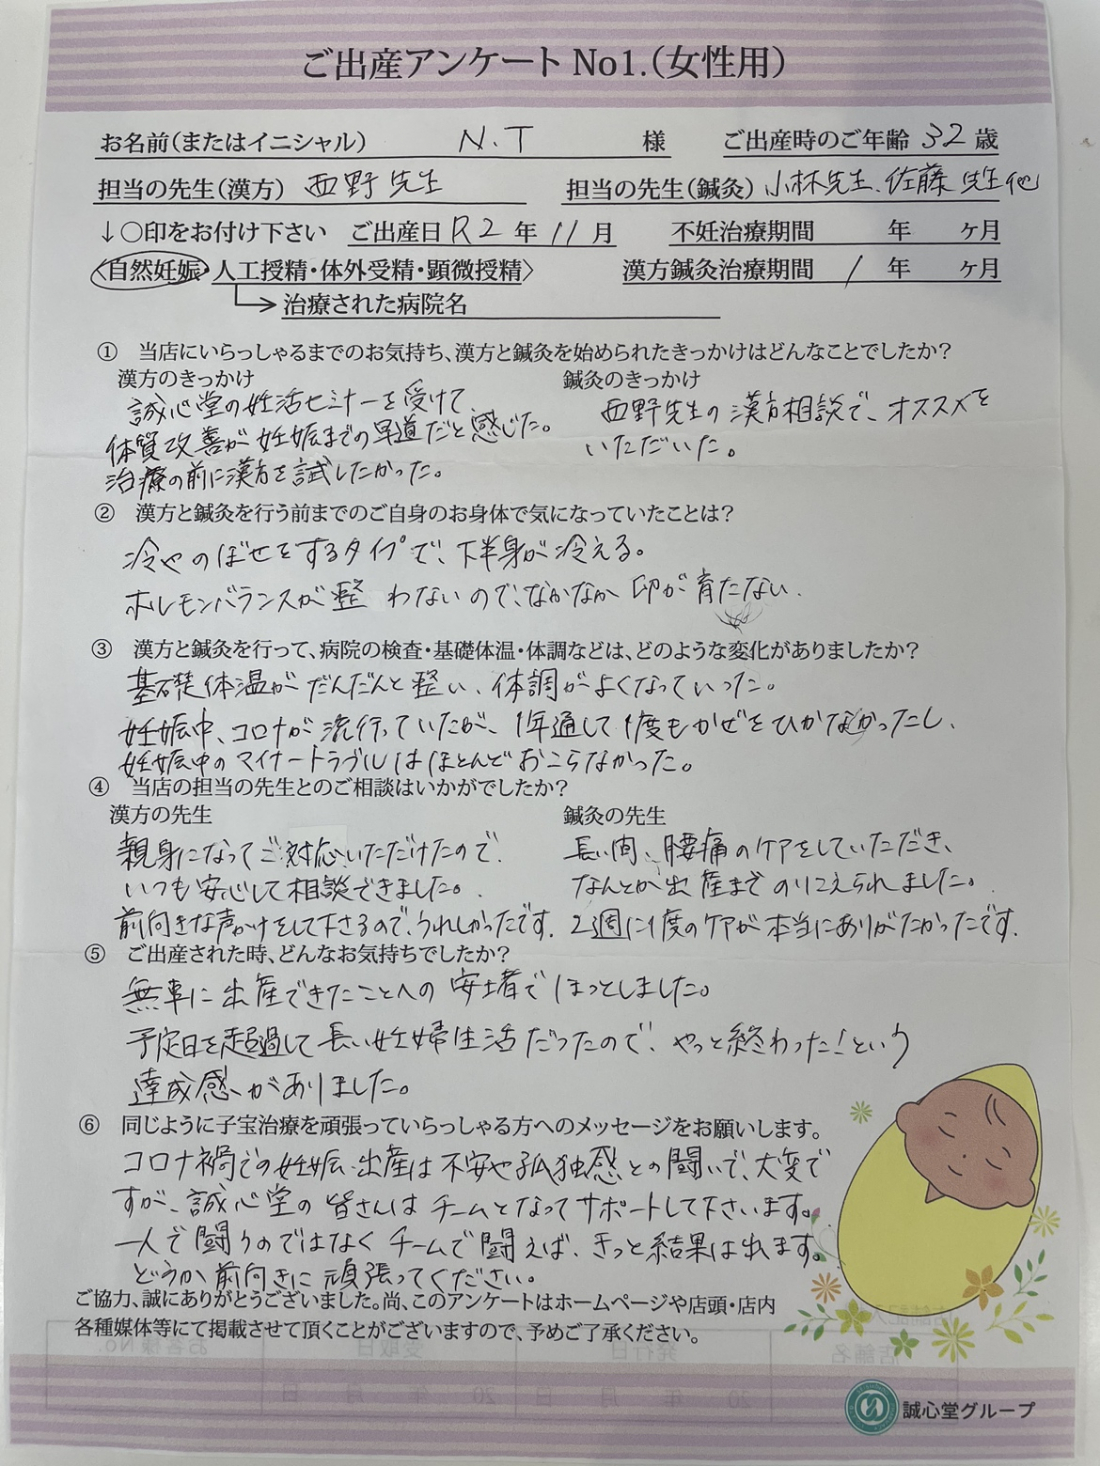 ご出産アンケート No1.(女性用)
お名前(またはイニシャル) N.T 様 ご出産時のご年齢 32 歳
担当の先生(漢方) 西野先生 担当の先生(鍼灸) 小林先生、佐藤先生他
↓○印をお付け下さい ご出産日 R2 年 11 月 不妊治療期間 年 ヶ月
〈自然妊娠・人工授精・体外受精・顕微授精〉 漢方鍼灸治療期間 1 年 ヶ月
治療された病院名
① 当店にいらっしゃるまでのお気持ち、漢方と鍼灸を始められたきっかけはどんなことでしたか?
漢方のきっかけ 鍼灸のきっかけ
誠心堂の妊活セミナーを受けて、 西野先生の漢方相談で、オススメを
体質改善が妊娠までの早道だと感じた。 いただいた。
治療の前に漢方を試したかった。
② 漢方と鍼灸を行う前までのご自身のお身体で気になっていたことは?
冷やのぼせをするタイプで、下半身が冷える。
ホルモンバランスが整わないので、なかなか卵が育たない.
③ 漢方と鍼灸を行って、病院の検査・基礎体温・体調などは、どのような変化がありましたか?
基礎体温がだんだんと整い、体調がよくなっていった。
妊娠中、コロナが流行っていたが、1年通して1度もかぜをひかなかったし、
妊娠中のマイナートラブルはほとんどおこらなかった。
④ 当店の担当の先生とのご相談はいかがでしたか?
漢方の先生 鍼灸の先生
親身になってご対応いただけたので、 長い間、腰痛のケアをしていただき、
いつも安心して相談できました。 なんとか出産までのりこえられました。
前向きな声かけをして下さるので、うれしかったです. 2週に1度のケアが本当にありがたかったです.
⑤ ご出産された時、どんなお気持ちでしたか?
無事に出産できたことへの安堵でほっとしました。
予定日を超過して長い妊婦生活だったので、やっと終わった!という
達成感がありました。
⑥ 同じように子宝治療を頑張っていらっしゃる方へのメッセージをお願いします。
コロナ禍での妊娠、出産は不安や孤独感との闘いで、大変で
すが、誠心堂の皆さんはチームとなってサポートして下さいます。
一人で闘うのではなくチームで闘えば、きっと結果は出ます。
どうか前向きに頑張ってください。
ご協力、誠にありがとうございました。尚、このアンケートはホームページや店頭・店内
各種媒体等にて掲載させて頂くことがございますので、予めご了承ください。
誠心堂グループ